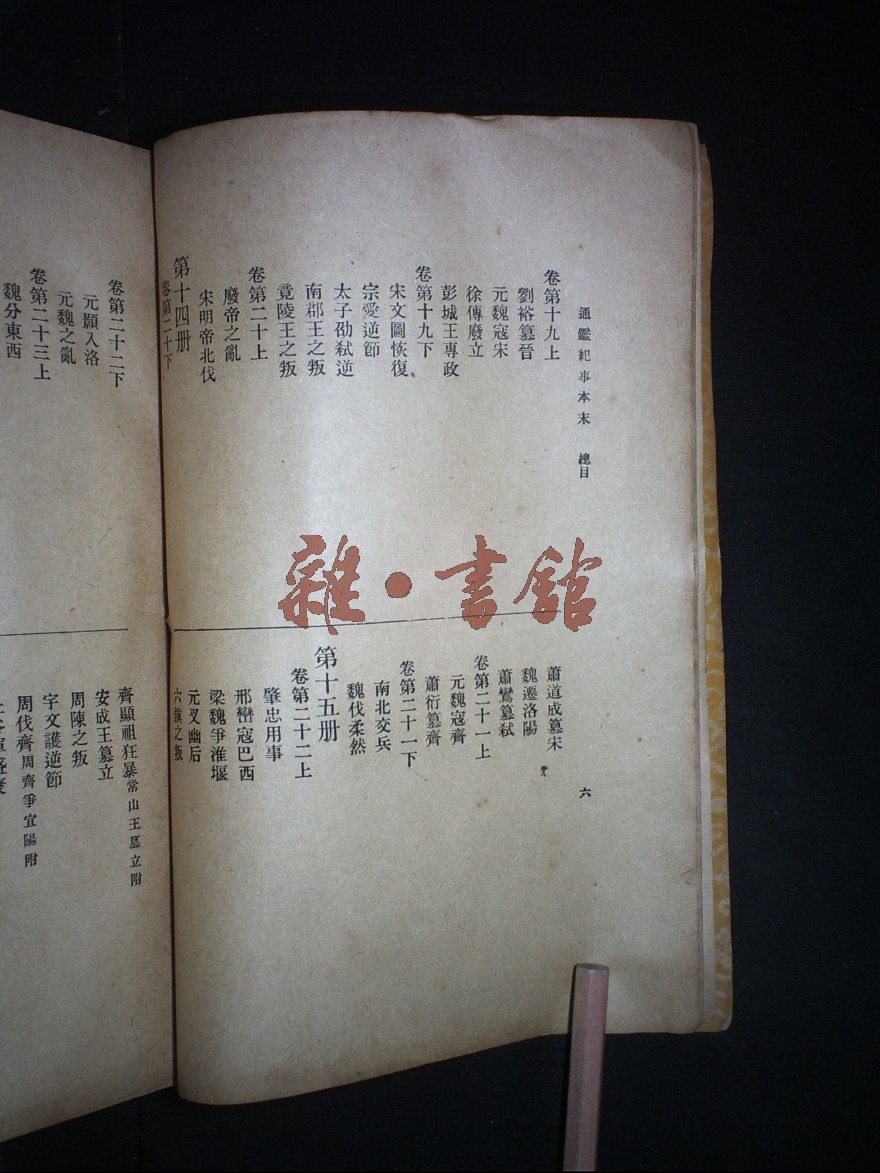 通鑑紀事本末 總目
六
卷第十九上
劉裕篡晉
元魏寇宋
徐傅廢立
彭城王專政
卷第十九下
宋文圖恢復
宗愛逆節
太子劭弑逆
南郡王之叛
竟陵王之叛
卷第二十上
廢帝之亂
宋明帝北伐
第十四册
卷第二十下
蕭道成篡宋
魏遷洛陽
蕭鸞篡弑
卷第二十一上
元魏寇齊
蕭衍篡齊
卷第二十一下
南北交兵
魏伐柔然
第十五册
卷第二十二上
肇忠用事
邢巒寇巴西
梁魏爭淮堰
元叉幽后
六鎮之叛
卷第二十二下
元顥入洛
元魏之亂
卷第二十三上
魏分東西
齊顯祖狂暴常山王篡立附
安成王篡立
周陳之叛
宇文護逆節
周伐齊周齊爭宜陽附
雜·書館